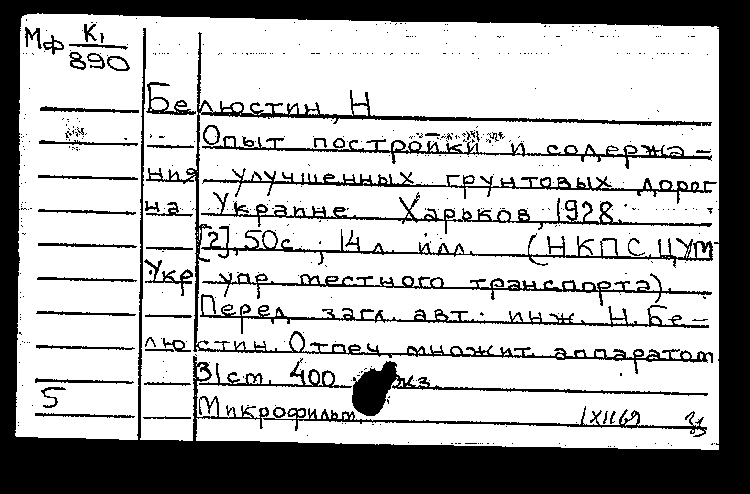 Мф К1/890
Белюстин, Н
Опыт постройки и содержа-
ния улучшенных грунтовых дорог
на Украине. Харьков, 1928.
[2], 50 с.; 14 л. илл. (НКПС. ЦУМТ
Укр упр. местного транспорта).
Перед загл. авт.: инж. Н. Бе-
люстин. Отпеч. множит. аппаратом
31 ст. 400 кз.
5 Микрофильм. 1XII69